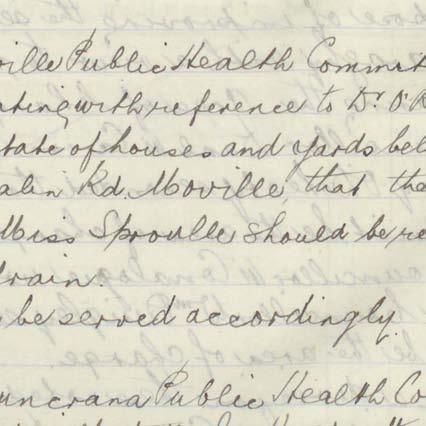 ville Public Health Committ
ating with reference to Dr O'R
state of houses and yards bel
alin Rd. Moville, that the
Miss Sproulle should be re
drain.
be served accordingly.
uncrana Public Health Co